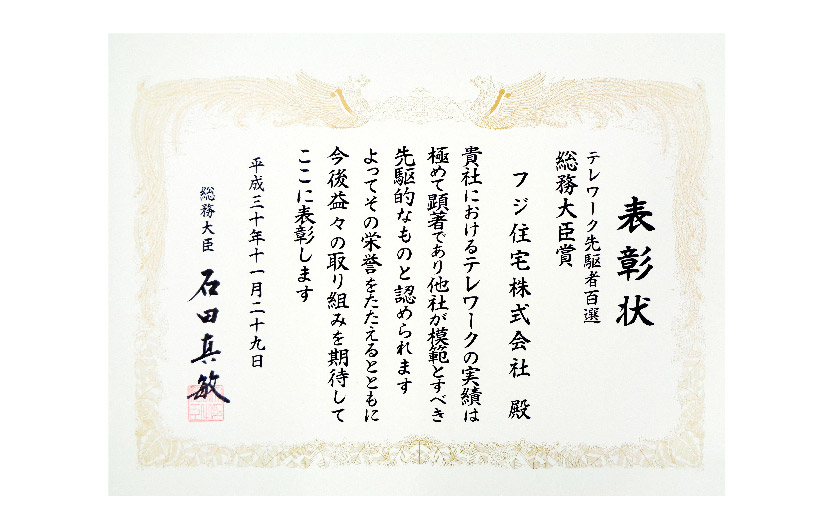 表彰状
テレワーク先駆者百選
総務大臣賞
フジ住宅株式会社 殿
貴社におけるテレワークの実績は
極めて顕著であり他社が模範とすべき
先駆的なものと認められます
よってその栄誉をたたえるとともに
今後益々の取り組みを期待して
ここに表彰します
平成三十年十一月二十九日
総務大臣 石田真敏